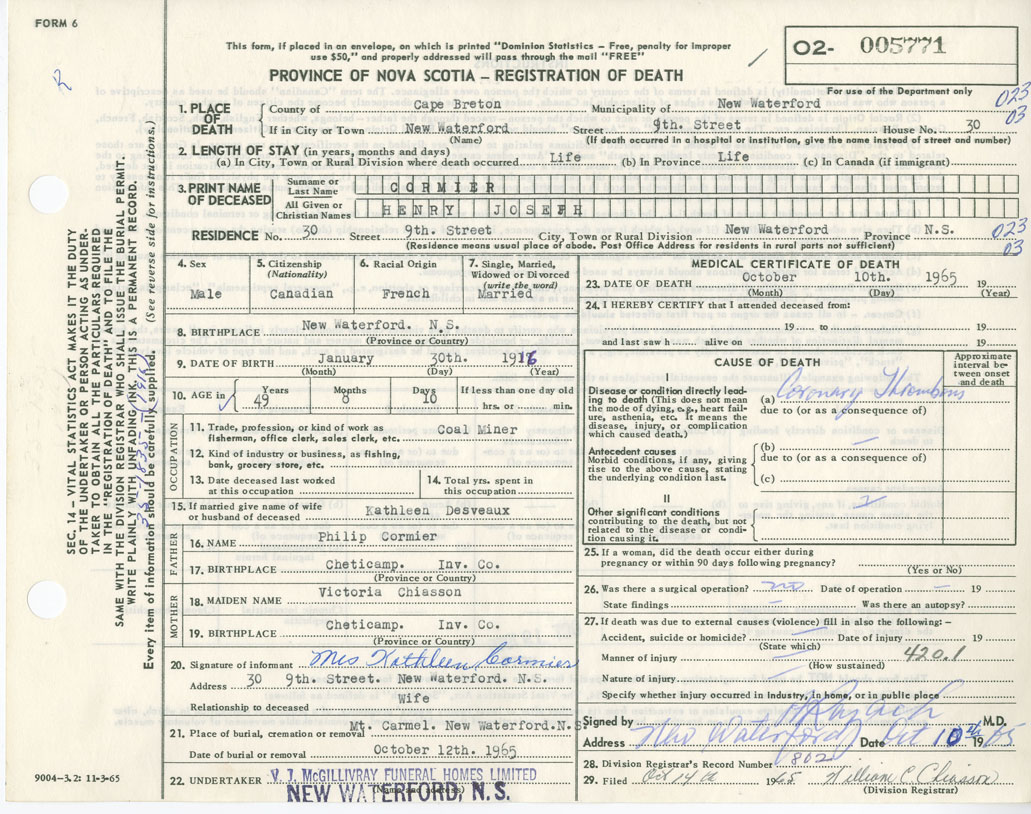 FORM 6
This form, if placed in an envelope, on which is printed "Dominion Statistics – Free, penalty for improper
use $50," and properly addressed will pass through the mail "FREE"
O2- 005771
PROVINCE OF NOVA SCOTIA – REGISTRATION OF DEATH
For use of the Department only
023
03
1. PLACE OF DEATH
County of Cape Breton Municipality of New Waterford
If in City or Town New Waterford Street 9th. Street House No. 30
(Name) (If death occurred in a hospital or institution, give the name instead of street and number)
2. LENGTH OF STAY (in years, months and days)
(a) In City, Town or Rural Division where death occurred Life (b) In Province Life (c) In Canada (if immigrant)
3. PRINT NAME OF DECEASED
Surname or Last Name CORMIER
All Given or Christian Names HENRY JOSEPH
RESIDENCE No. 30 Street 9th. Street City, Town or Rural Division New Waterford Province N.S.
(Residence means usual place of abode, Post Office Address for residents in rural parts not sufficient)
023
03
4. Sex
Male
5. Citizenship
(Nationality)
Canadian
6. Racial Origin
French
7. Single, Married,
Widowed or Divorced
(write the word)
Married
8. BIRTHPLACE New Waterford. N.S.
(Province or Country)
9. DATE OF BIRTH January 30th. 1916
(Month) (Day) (Year)
10. AGE in Years 49 Months 8 Days 10 If less than one day old
hrs. or min.
OCCUPATION
11. Trade, profession, or kind of work as
fisherman, office clerk, sales clerk, etc. Coal Miner
12. Kind of industry or business, as fishing,
bank, grocery store, etc.
13. Date deceased last worked
at this occupation
14. Total yrs. spent in
this occupation
15. If married give name of wife
or husband of deceased Kathleen Desveaux
FATHER
16. NAME Philip Cormier
17. BIRTHPLACE Cheticamp. Inv. Co.
(Province or Country)
MOTHER
18. MAIDEN NAME Victoria Chiasson
19. BIRTHPLACE Cheticamp. Inv. Co.
(Province or Country)
20. Signature of informant Mrs Kathleen Cormier
Address 30 9th. Street. New Waterford. N.S.
Relationship to deceased Wife
21. Place of burial, cremation or removal Mt. Carmel. New Waterford.N.S.
Date of burial or removal October 12th. 1965
22. UNDERTAKER V. J. McGILLIVRAY FUNERAL HOMES LIMITED
(Name and address)
NEW WATERFORD, N. S.
MEDICAL CERTIFICATE OF DEATH
23. DATE OF DEATH October 10th. 1965 19
(Month) (Day) (Year)
24. I HEREBY CERTIFY that I attended deceased from:
19 to 19
and last saw h alive on 19
CAUSE OF DEATH
Approximate
interval between
onset
and death
I
Disease or condition directly leading
to death (This does not mean
the mode of dying, e.g., heart failure,
asthenia, etc. It means the
disease, injury, or complication
which caused death.)
(a) Coronary Thrombosis
due to (or as a consequence of)
Antecedent causes
Morbid conditions, if any, giving
rise to the above cause, stating
the underlying condition last.
(b)
due to (or as a consequence of)
(c)
II
Other significant conditions
contributing to the death, but not
related to the disease or condition
causing it.
25. If a woman, did the death occur either during
pregnancy or within 90 days following pregnancy?
(Yes or No)
26. Was there a surgical operation? no Date of operation – 19
State findings – Was there an autopsy?
27. If death was due to external causes (violence) fill in also the following: –
Accident, suicide or homicide? Date of injury 19
(State which)
Manner of injury 420.1
(How sustained)
Nature of injury
Specify whether injury occurred in Industry, in home, or in public place
Signed by M.D.
Address New Waterford Date Oct 10th 1965
28. Division Registrar's Record Number 802
29. Filed Oct 14th 1965 William C Chiasson
(Division Registrar)
SEC. 14 – VITAL STATISTICS ACT MAKES IT THE DUTY
OF THE UNDERTAKER OR PERSON ACTING AS UNDERTAKER
TO OBTAIN ALL THE PARTICULARS REQUIRED
IN THE "REGISTRATION OF DEATH" AND TO FILE THE
SAME WITH THE DIVISION REGISTRAR WHO SHALL ISSUE THE BURIAL PERMIT.
WRITE PLAINLY WITH UNFADING INK. THIS IS A PERMANENT RECORD.
Every item of information should be carefully supplied. (See reverse side for instructions.)
9004–3.2: 11-3-65